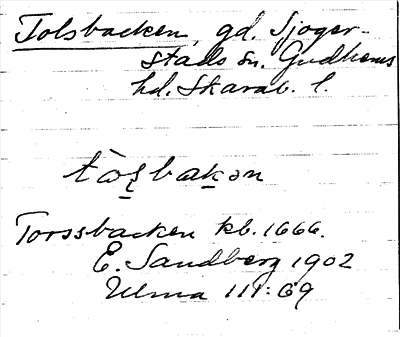 Tolsbacken, gd. Sjoger-
stads sn. Gudhems
hd. Skarab. l.
tò̱ʂbaḵən
Torssbacken kb. 1666.
E. Sandberg 1902
Ulma 111:69